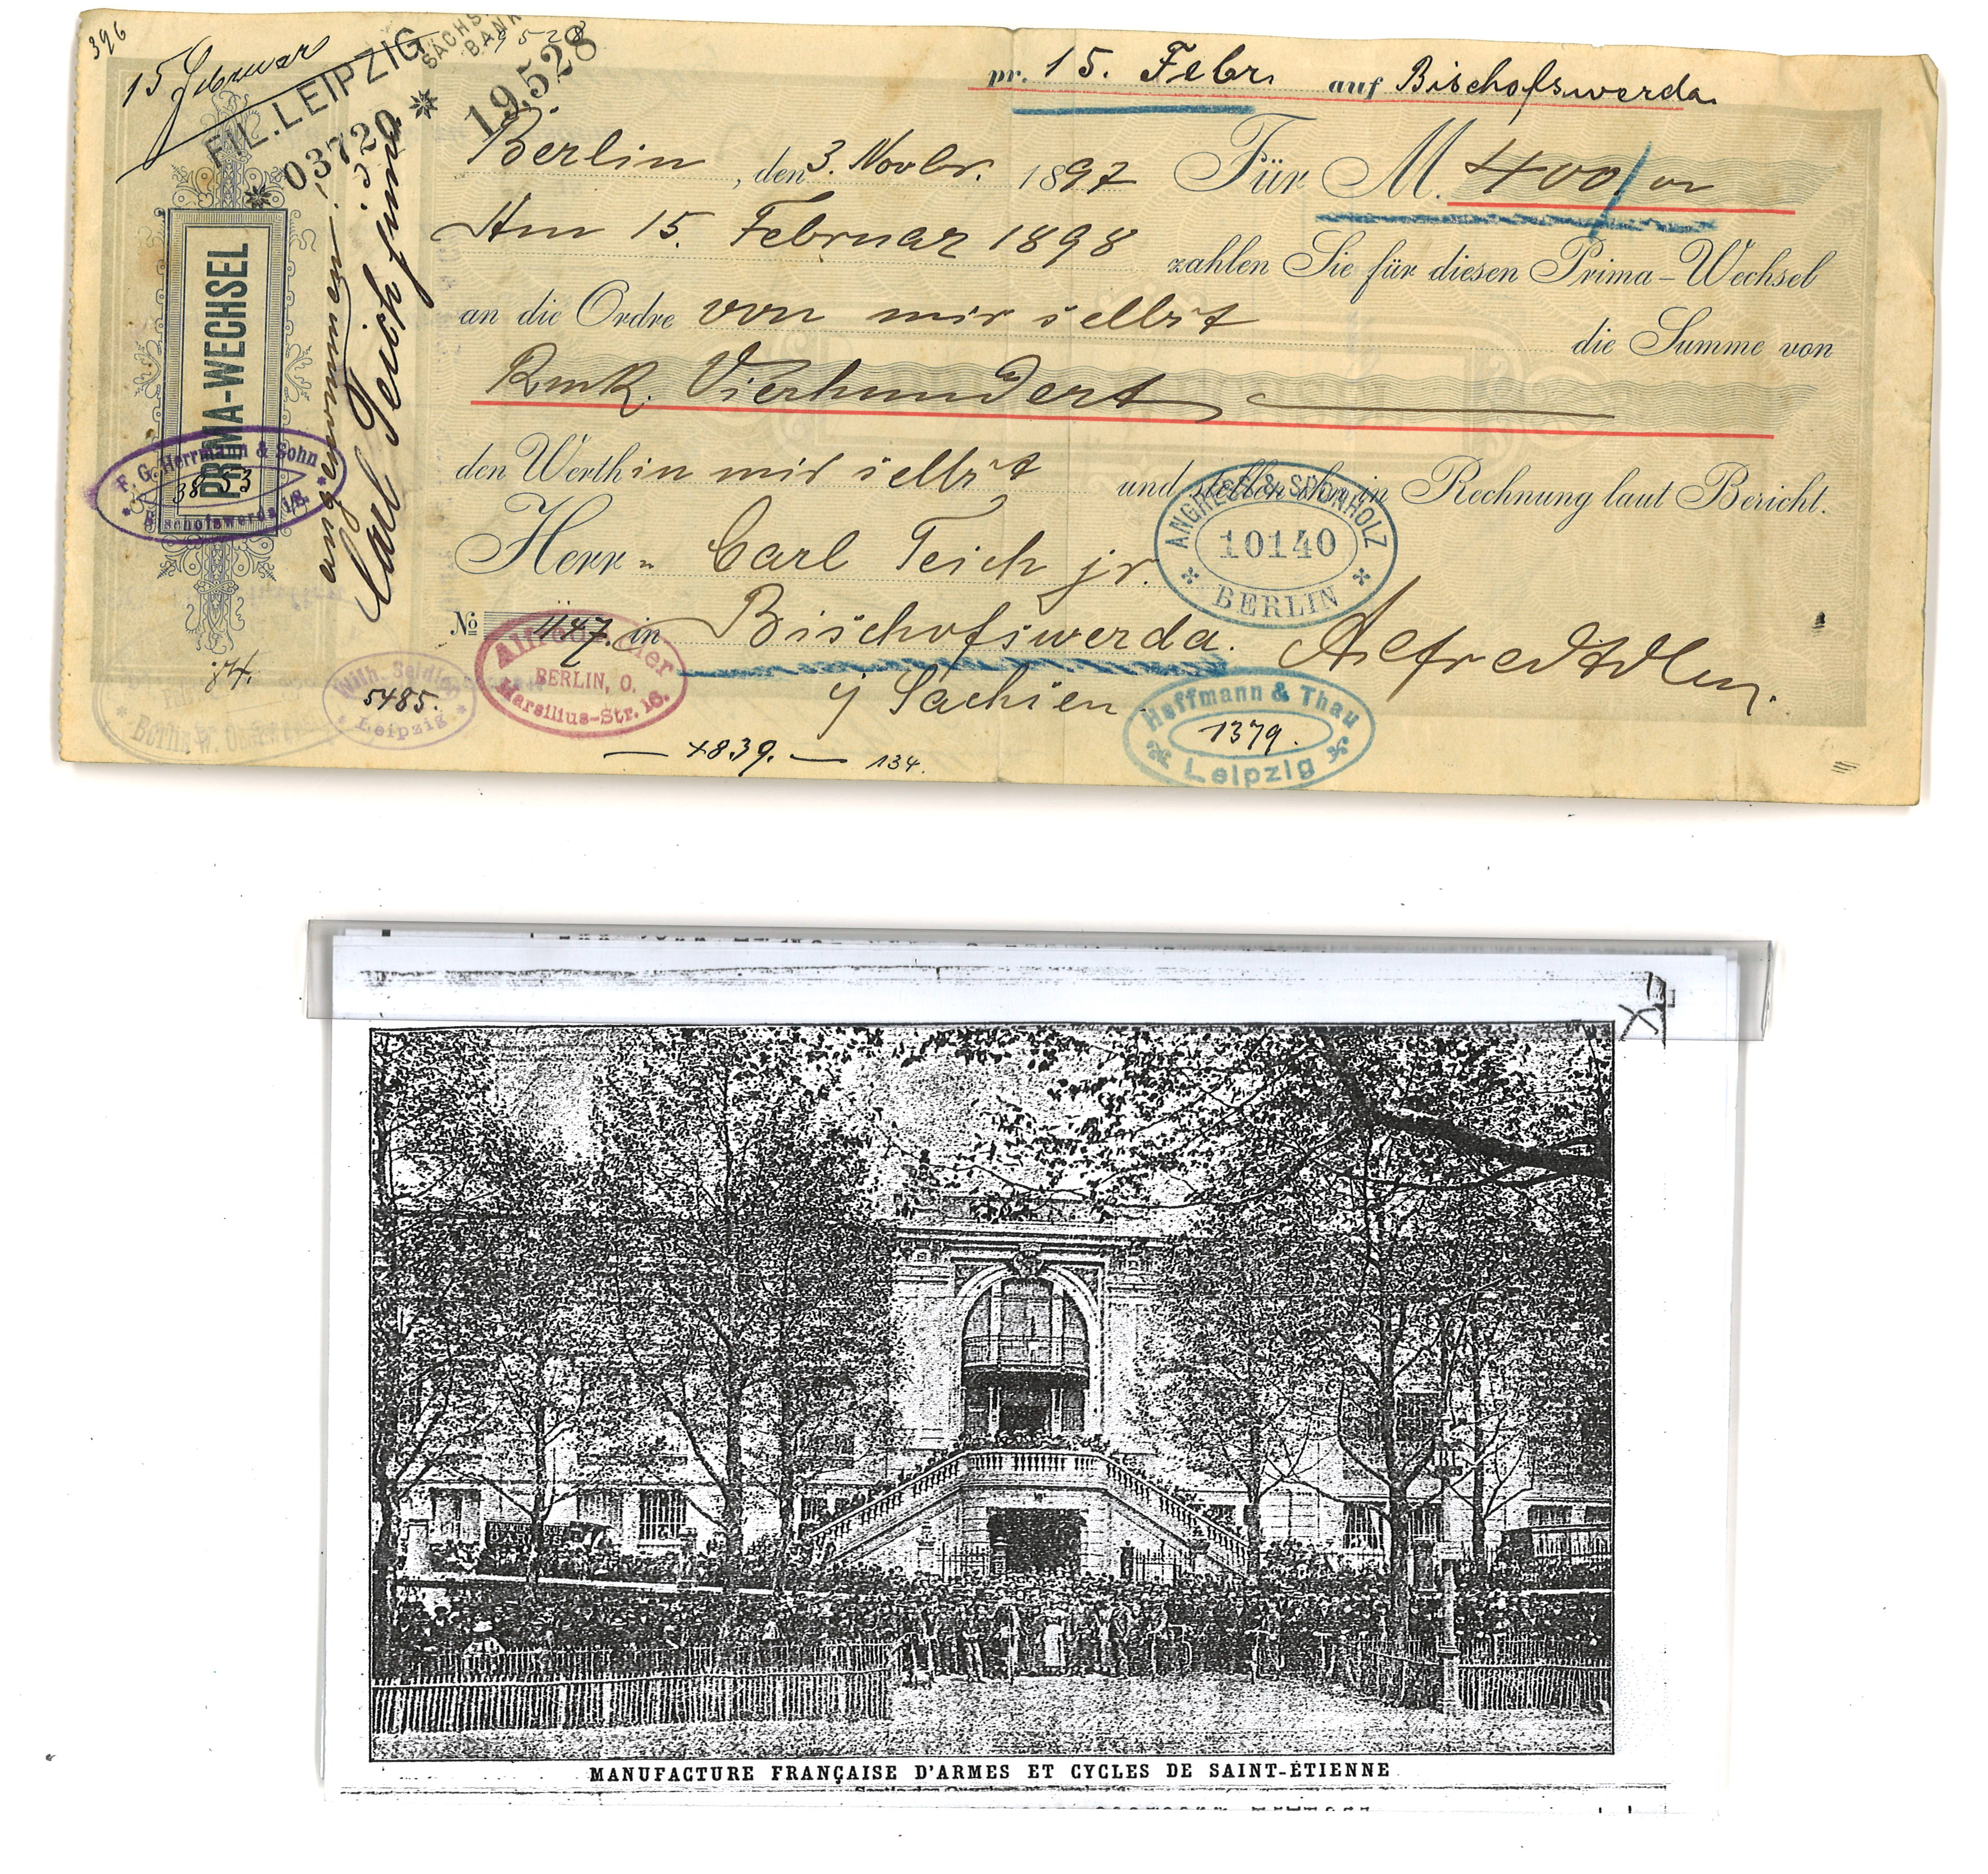 396
15 Februar
FIL. LEIPZIG
SÄCHS. BANK
* 03720 *
19,528
pr. 15. Febr. auf Bischofswerda
Berlin, den 3. Novbr. 1897 Für M. 400/00
Am 15. Februar 1898 zahlen Sie für diesen Prima-Wechsel
an die Ordre von mir selbst die Summe von
Rmk. Vierhundert
den Werth in mir selbst und stellen ihn in Rechnung laut Bericht.
Herrn Carl Teich jr.
No 1147. in Bischofswerda.
i/ Sachsen
Alfred Adler.
PRIMA-WECHSEL
angenommen!
Carl Teich junr.
F. G. Herrmann & Sohn
3853
* Bischofswerda i/S. *
ANGRESS & SPORNHOLZ
10140
BERLIN
Alfred Adler
BERLIN, O.
Marsilius-Str. 16.
Wilh. Seidler
5485.
* Leipzig. *
Hoffmann & Thau
1379.
Leipzig
Berlin W.
74.
4839. — 134.
MANUFACTURE FRANÇAISE D'ARMES ET CYCLES DE SAINT-ÉTIENNE